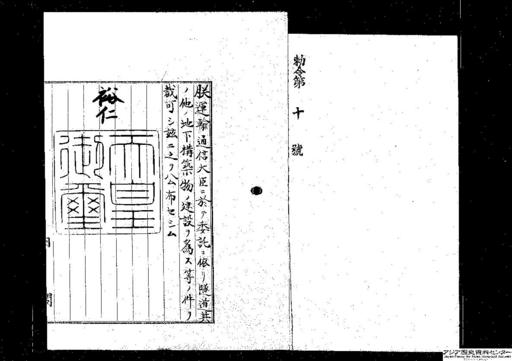 勅令第十號
朕運輸通信大臣ニ於テ委託ニ依リ隧道其
ノ他ノ地下構築物ノ建設ヲ為ス等ノ件ヲ
裁可シ茲ニ之ヲ公布セシム
裕仁
天皇
御璽
アジア歴史資料センター